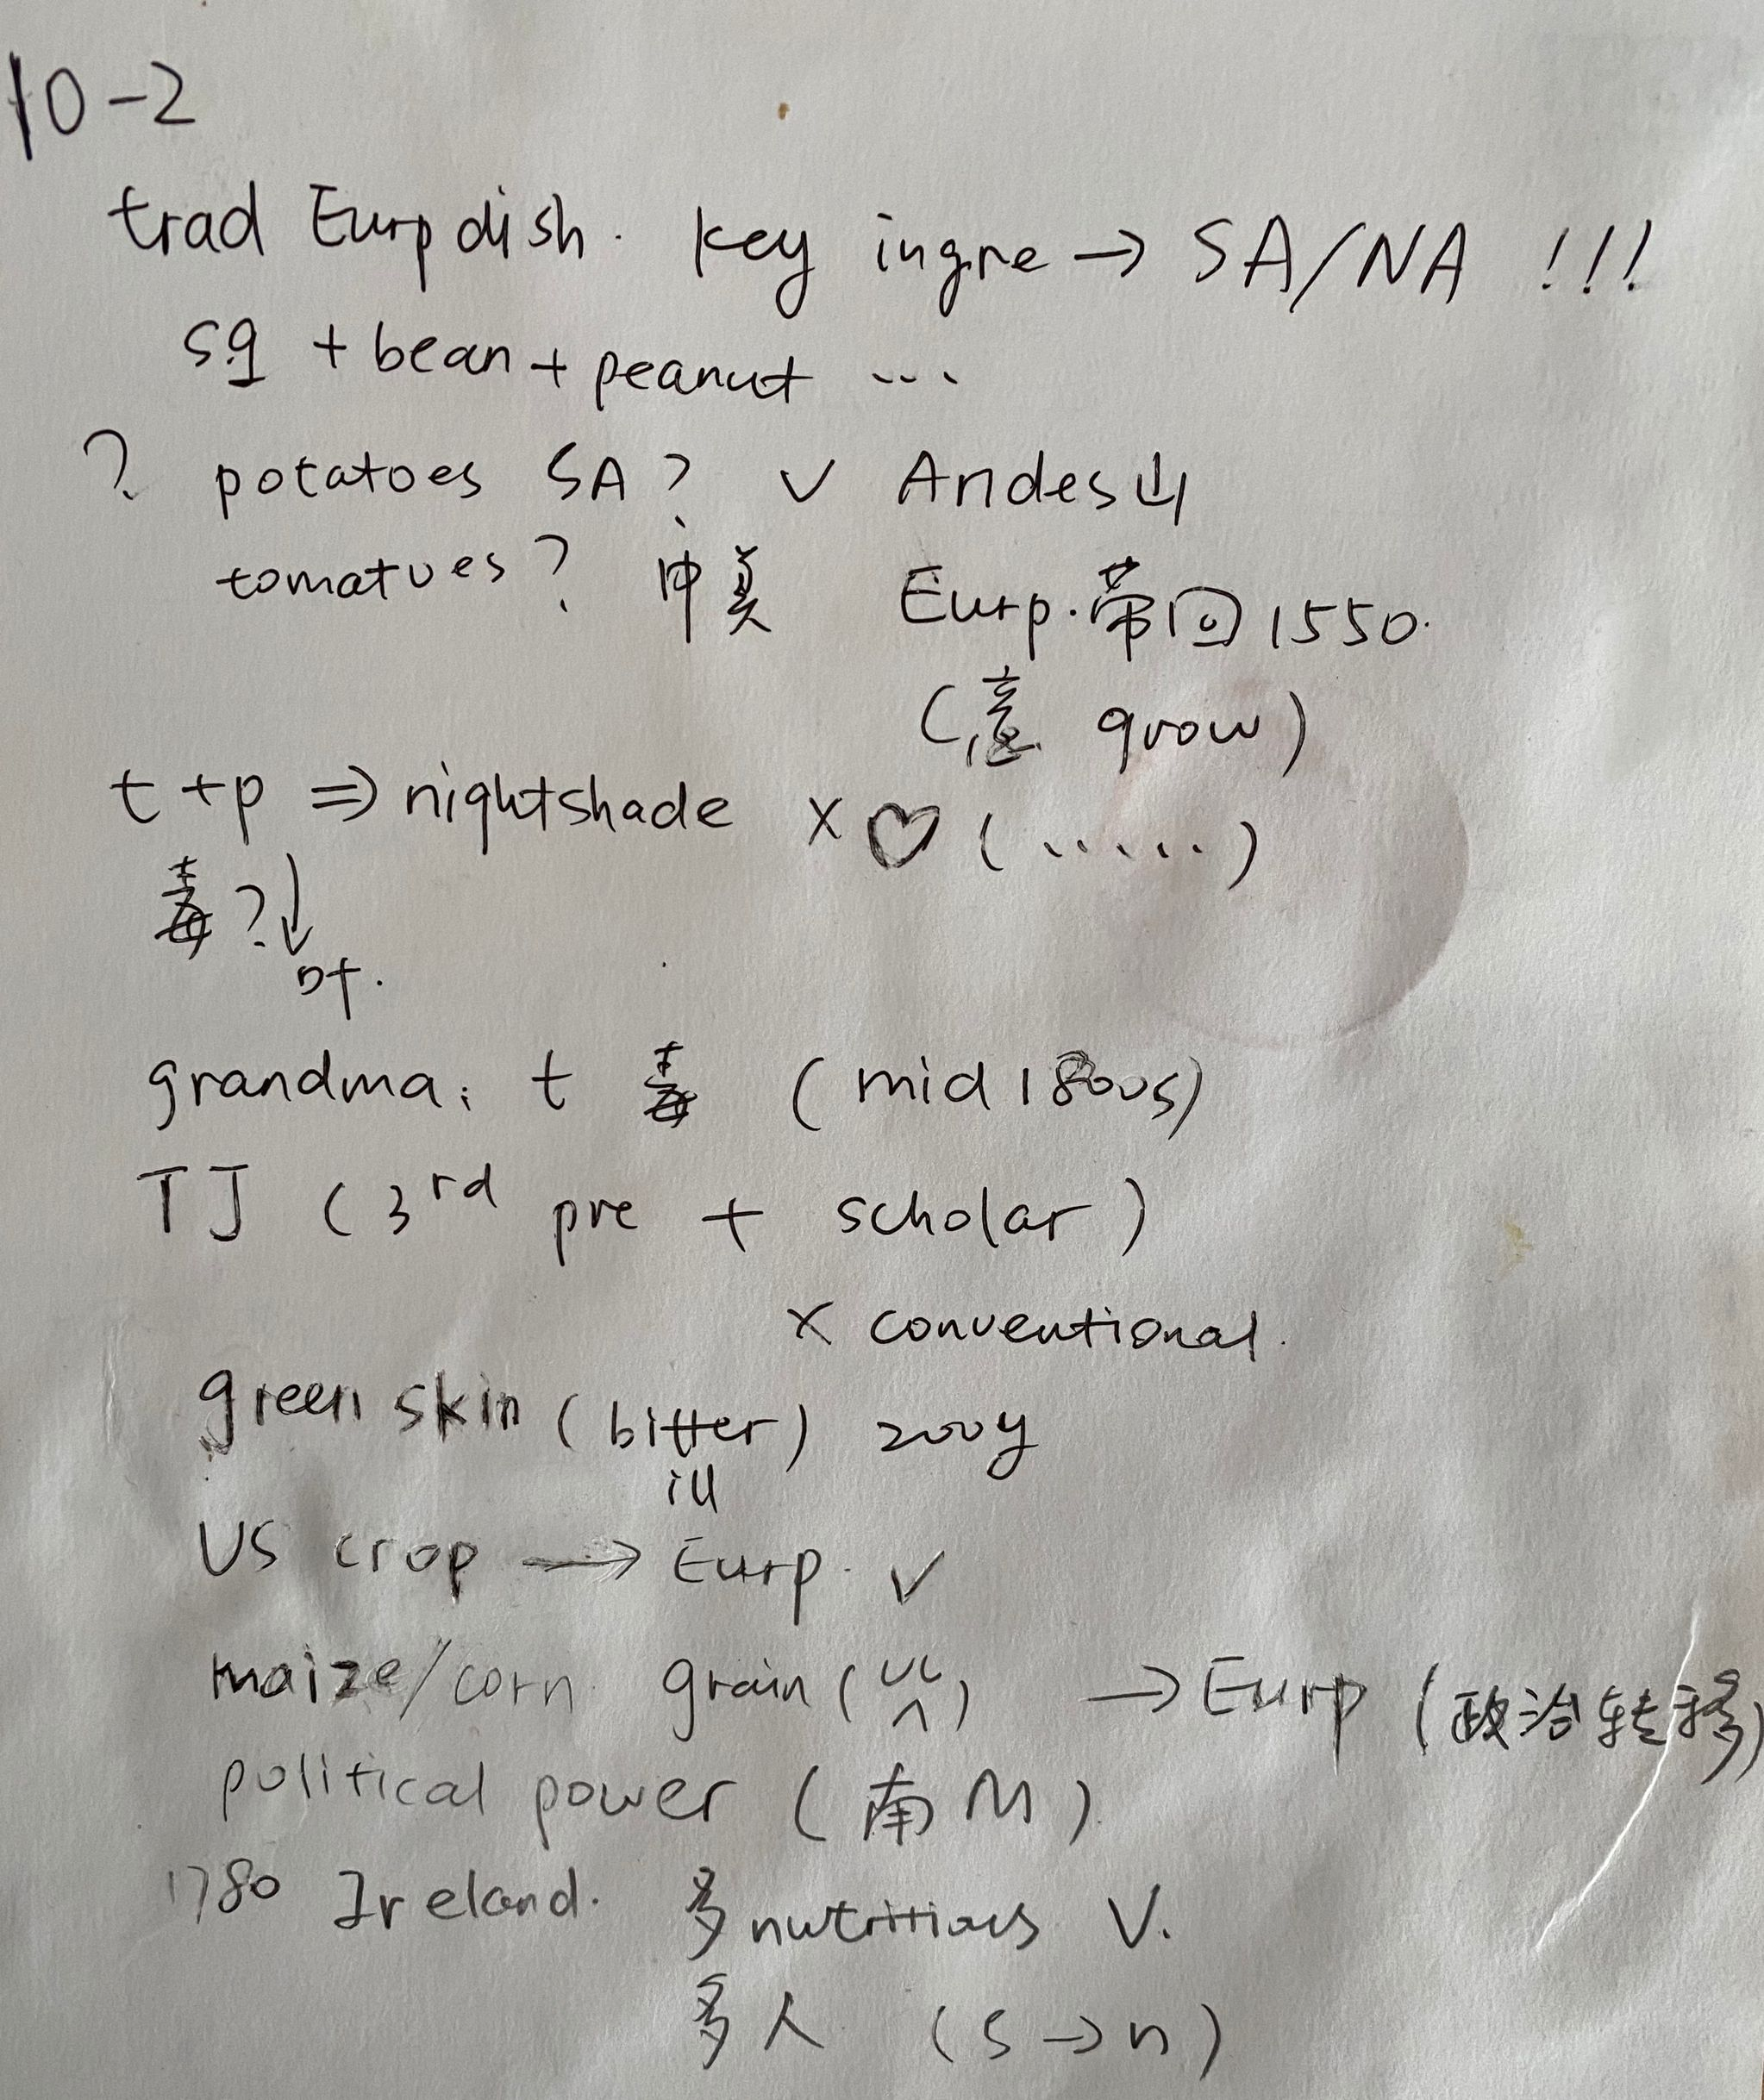 10-2
trad Eurp dish. key ingre → SA/NA !!!
sq + bean + peanut ...
? potatoes SA? ✓ Andes山
tomatoes? 中美 Eurp.带回1550.
(意 grow)
t+p ⇒ nightshade ×♡(......)
毒?↓
of.
grandma: t 毒 (mid 1800s)
TJ (3rd pre + scholar)
× conventional.
green skin (bitter) 200y
ill
US crop → Eurp. ✓
maize/corn grain ( ) → Eurp (政治转移)
political power (南 M)
1780 Ireland. 多nutritious ✓.
多人 (s→n)